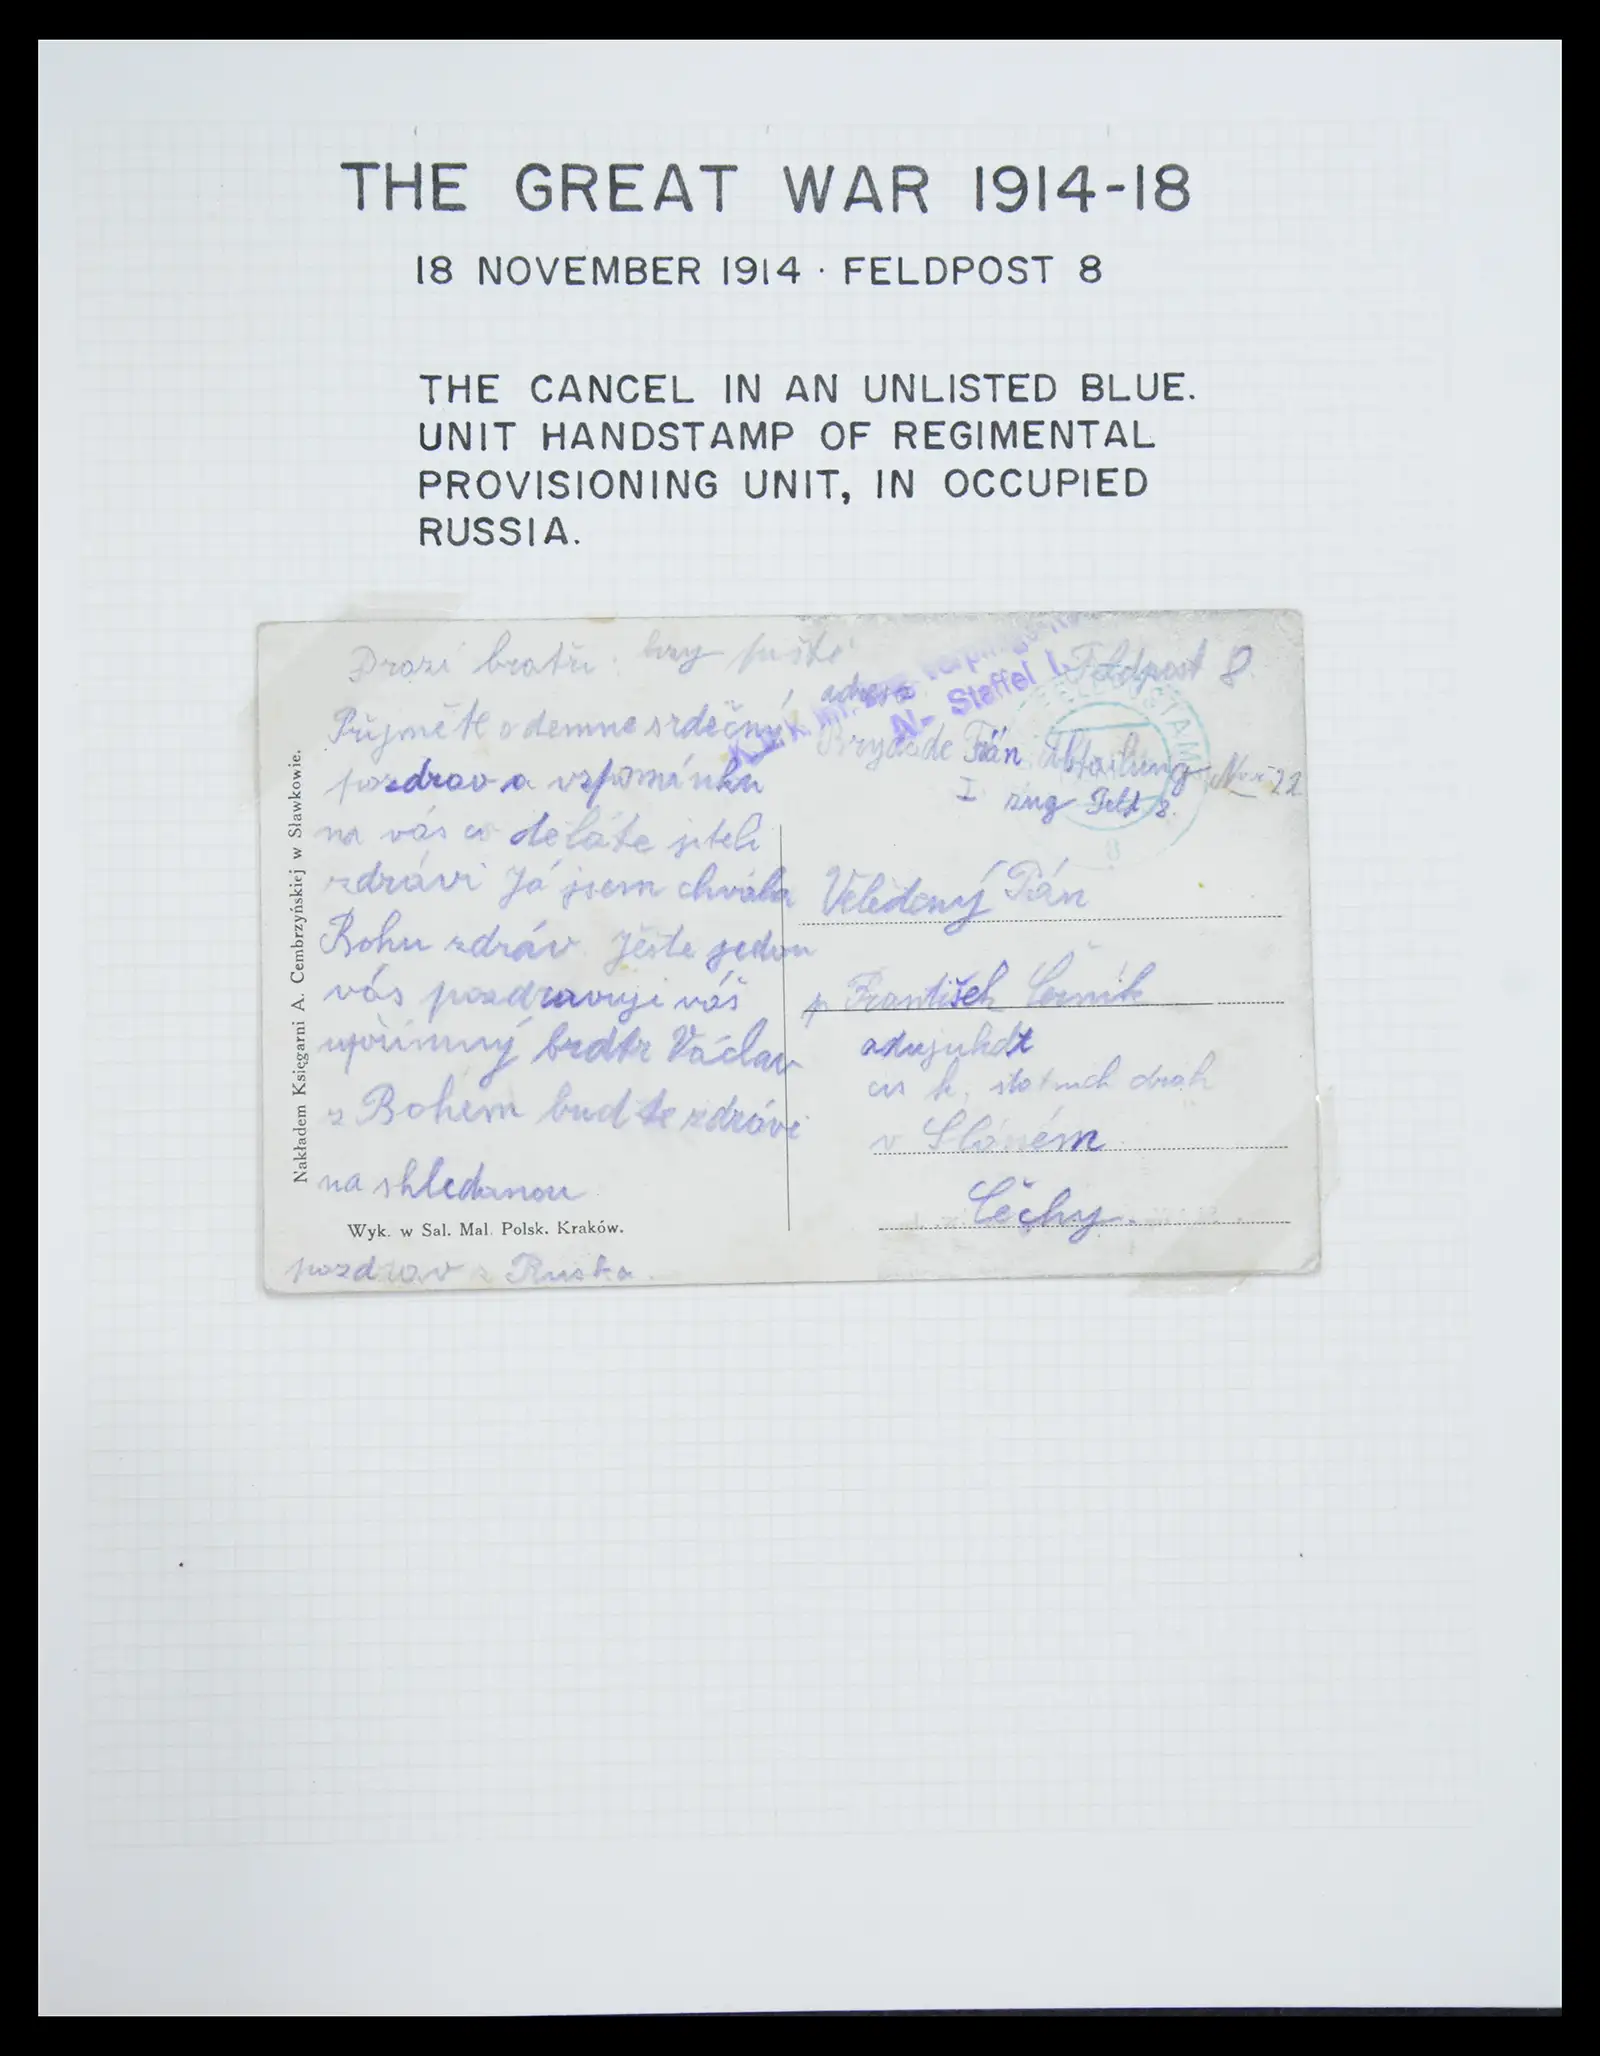 THE GREAT WAR 1914-18
18 NOVEMBER 1914 · FELDPOST 8
THE CANCEL IN AN UNLISTED BLUE.
UNIT HANDSTAMP OF REGIMENTAL
PROVISIONING UNIT, IN OCCUPIED
RUSSIA.
Drazí bratři
Přijměte odemne srdečný
pozdrav a vzpomínku
na vás co děláte jsteli
zdrávi Já jsem chvála
Bohu zdráv Ještě jednou
vás pozdravuji váš
upřímný bratr Václav
z Bohem buďte zdrávi
na shledanou
Wyk. w Sal. Mal. Polsk. Kraków.
pozdrav z Ruska.
Nakładem Księgarni A. Cembrzyńskiej w Sławkowie.
Staffel
Feldpost 8
adresa
Brygade Trän Abteilung
I zug Feld 8.
8
Velectený Pán
p František Černík
adujukdt
drah
v Slaném
Čechy.